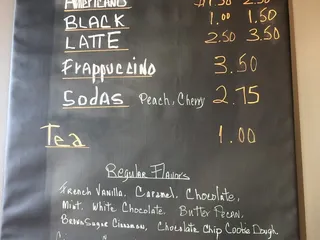 AMERICANO $1.50 2.50
BLACK 1.00 1.50
LATTE 2.50 3.50
FRAPPUCCINO 3.50
SODAS Peach, Cherry 2.75
Tea 1.00
Regular Flavors
French Vanilla. Caramel. Chocolate,
Mint. White Chocolate. Butter Pecan.
Brown Sugar Cinnamon, Chocolate Chip Cookie Dough.